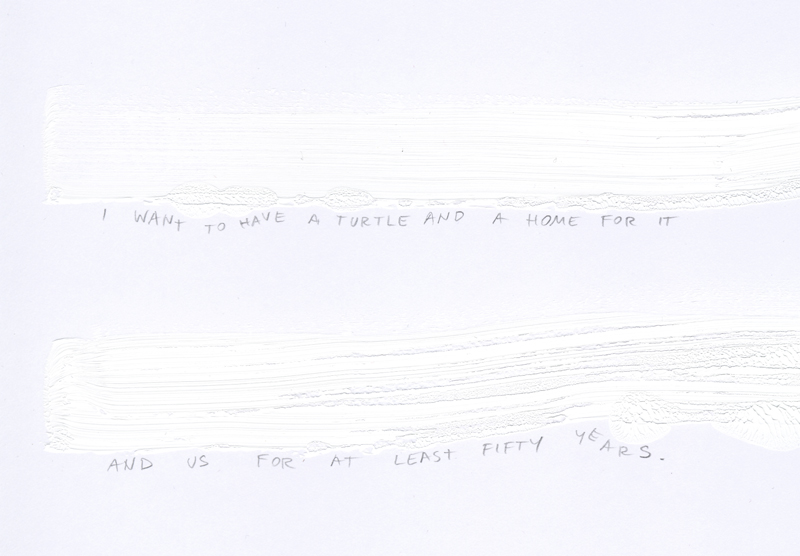 I WANT TO HAVE A TURTLE AND A HOME FOR IT
AND US FOR AT LEAST FIFTY YEARS.